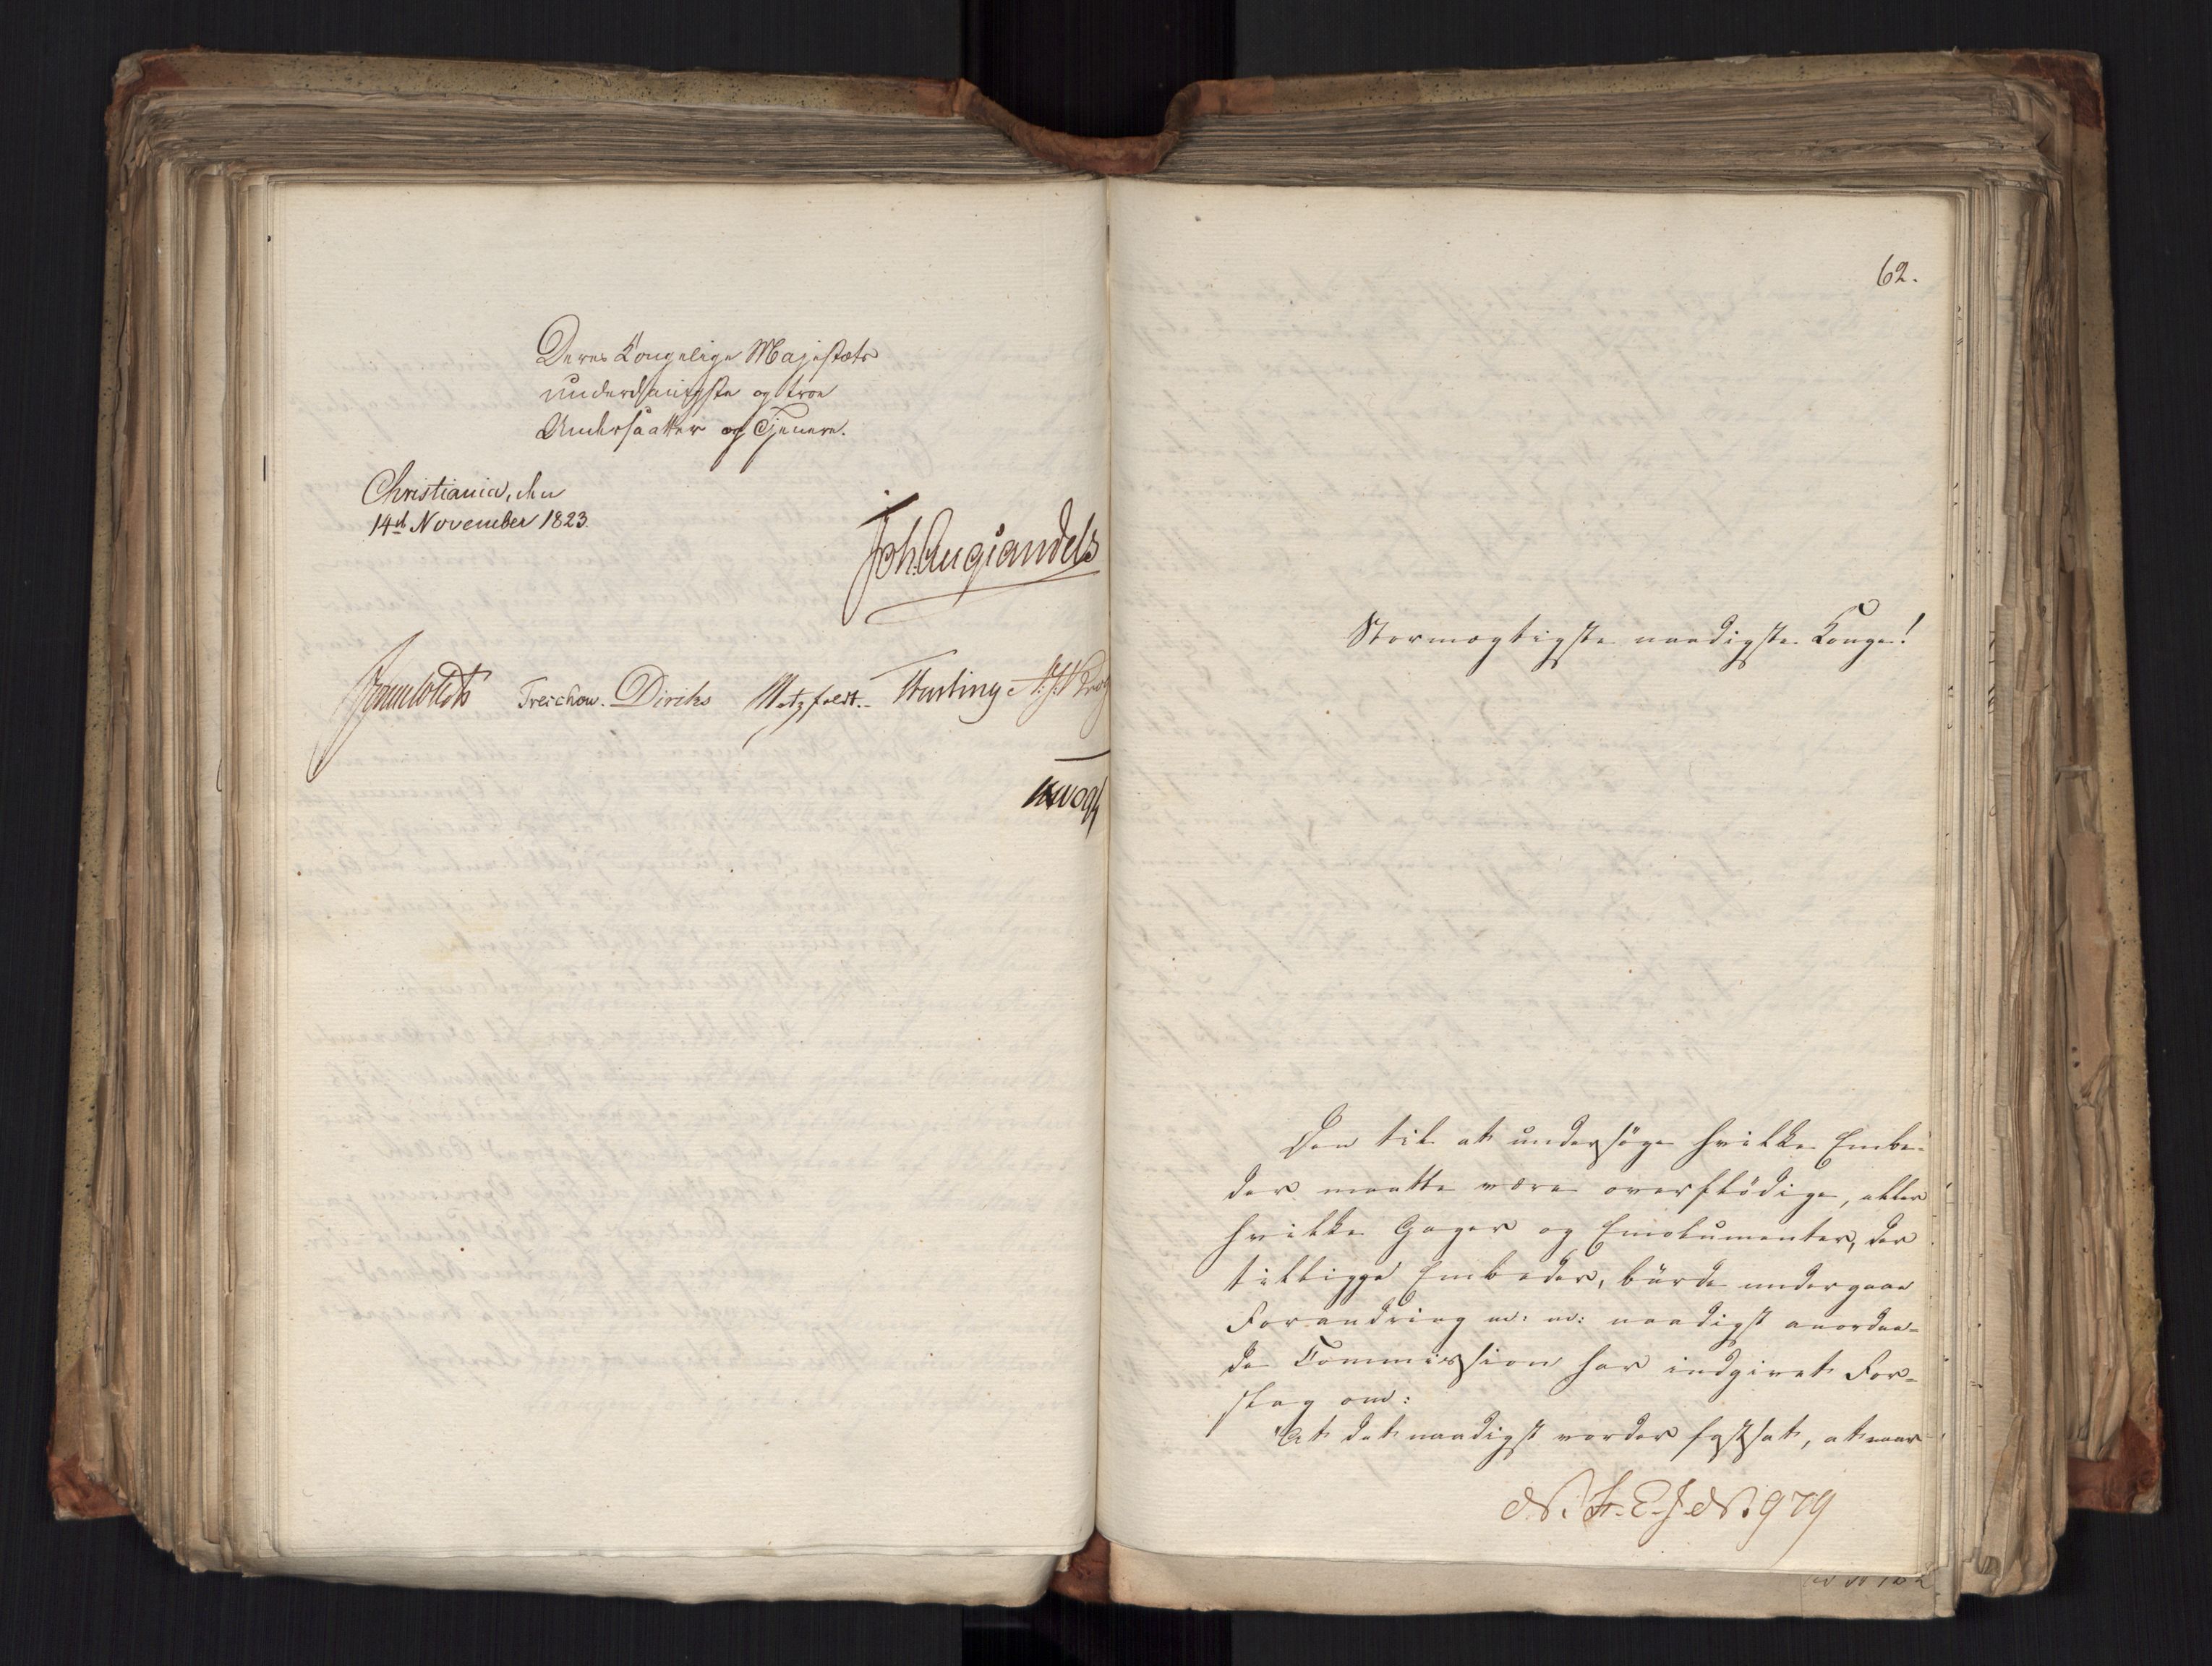 Deres Kongelige Majestæts
underdanigste og troe
Undersaatter og Tjenere.
Christiania, den
14d November 1823.
Joh. Aug. Sandels
Sommerhielm Treschow. Diriks Motzfeldt. Hartling
Krogh
62.
Stormægtigste naadigste Konge!
Den til at undersøge hvilke Embe-
der maatte være overflödige, eller
hvilke Gager og Emolumenter, der
tilligge Embeder, burde undergaae
Forandring m: m: naadigst anordne-
de Commission har indgivet For-
slag om:
"At det naadigst vorder fastsat, at naar
N. F. E. J. N. 979